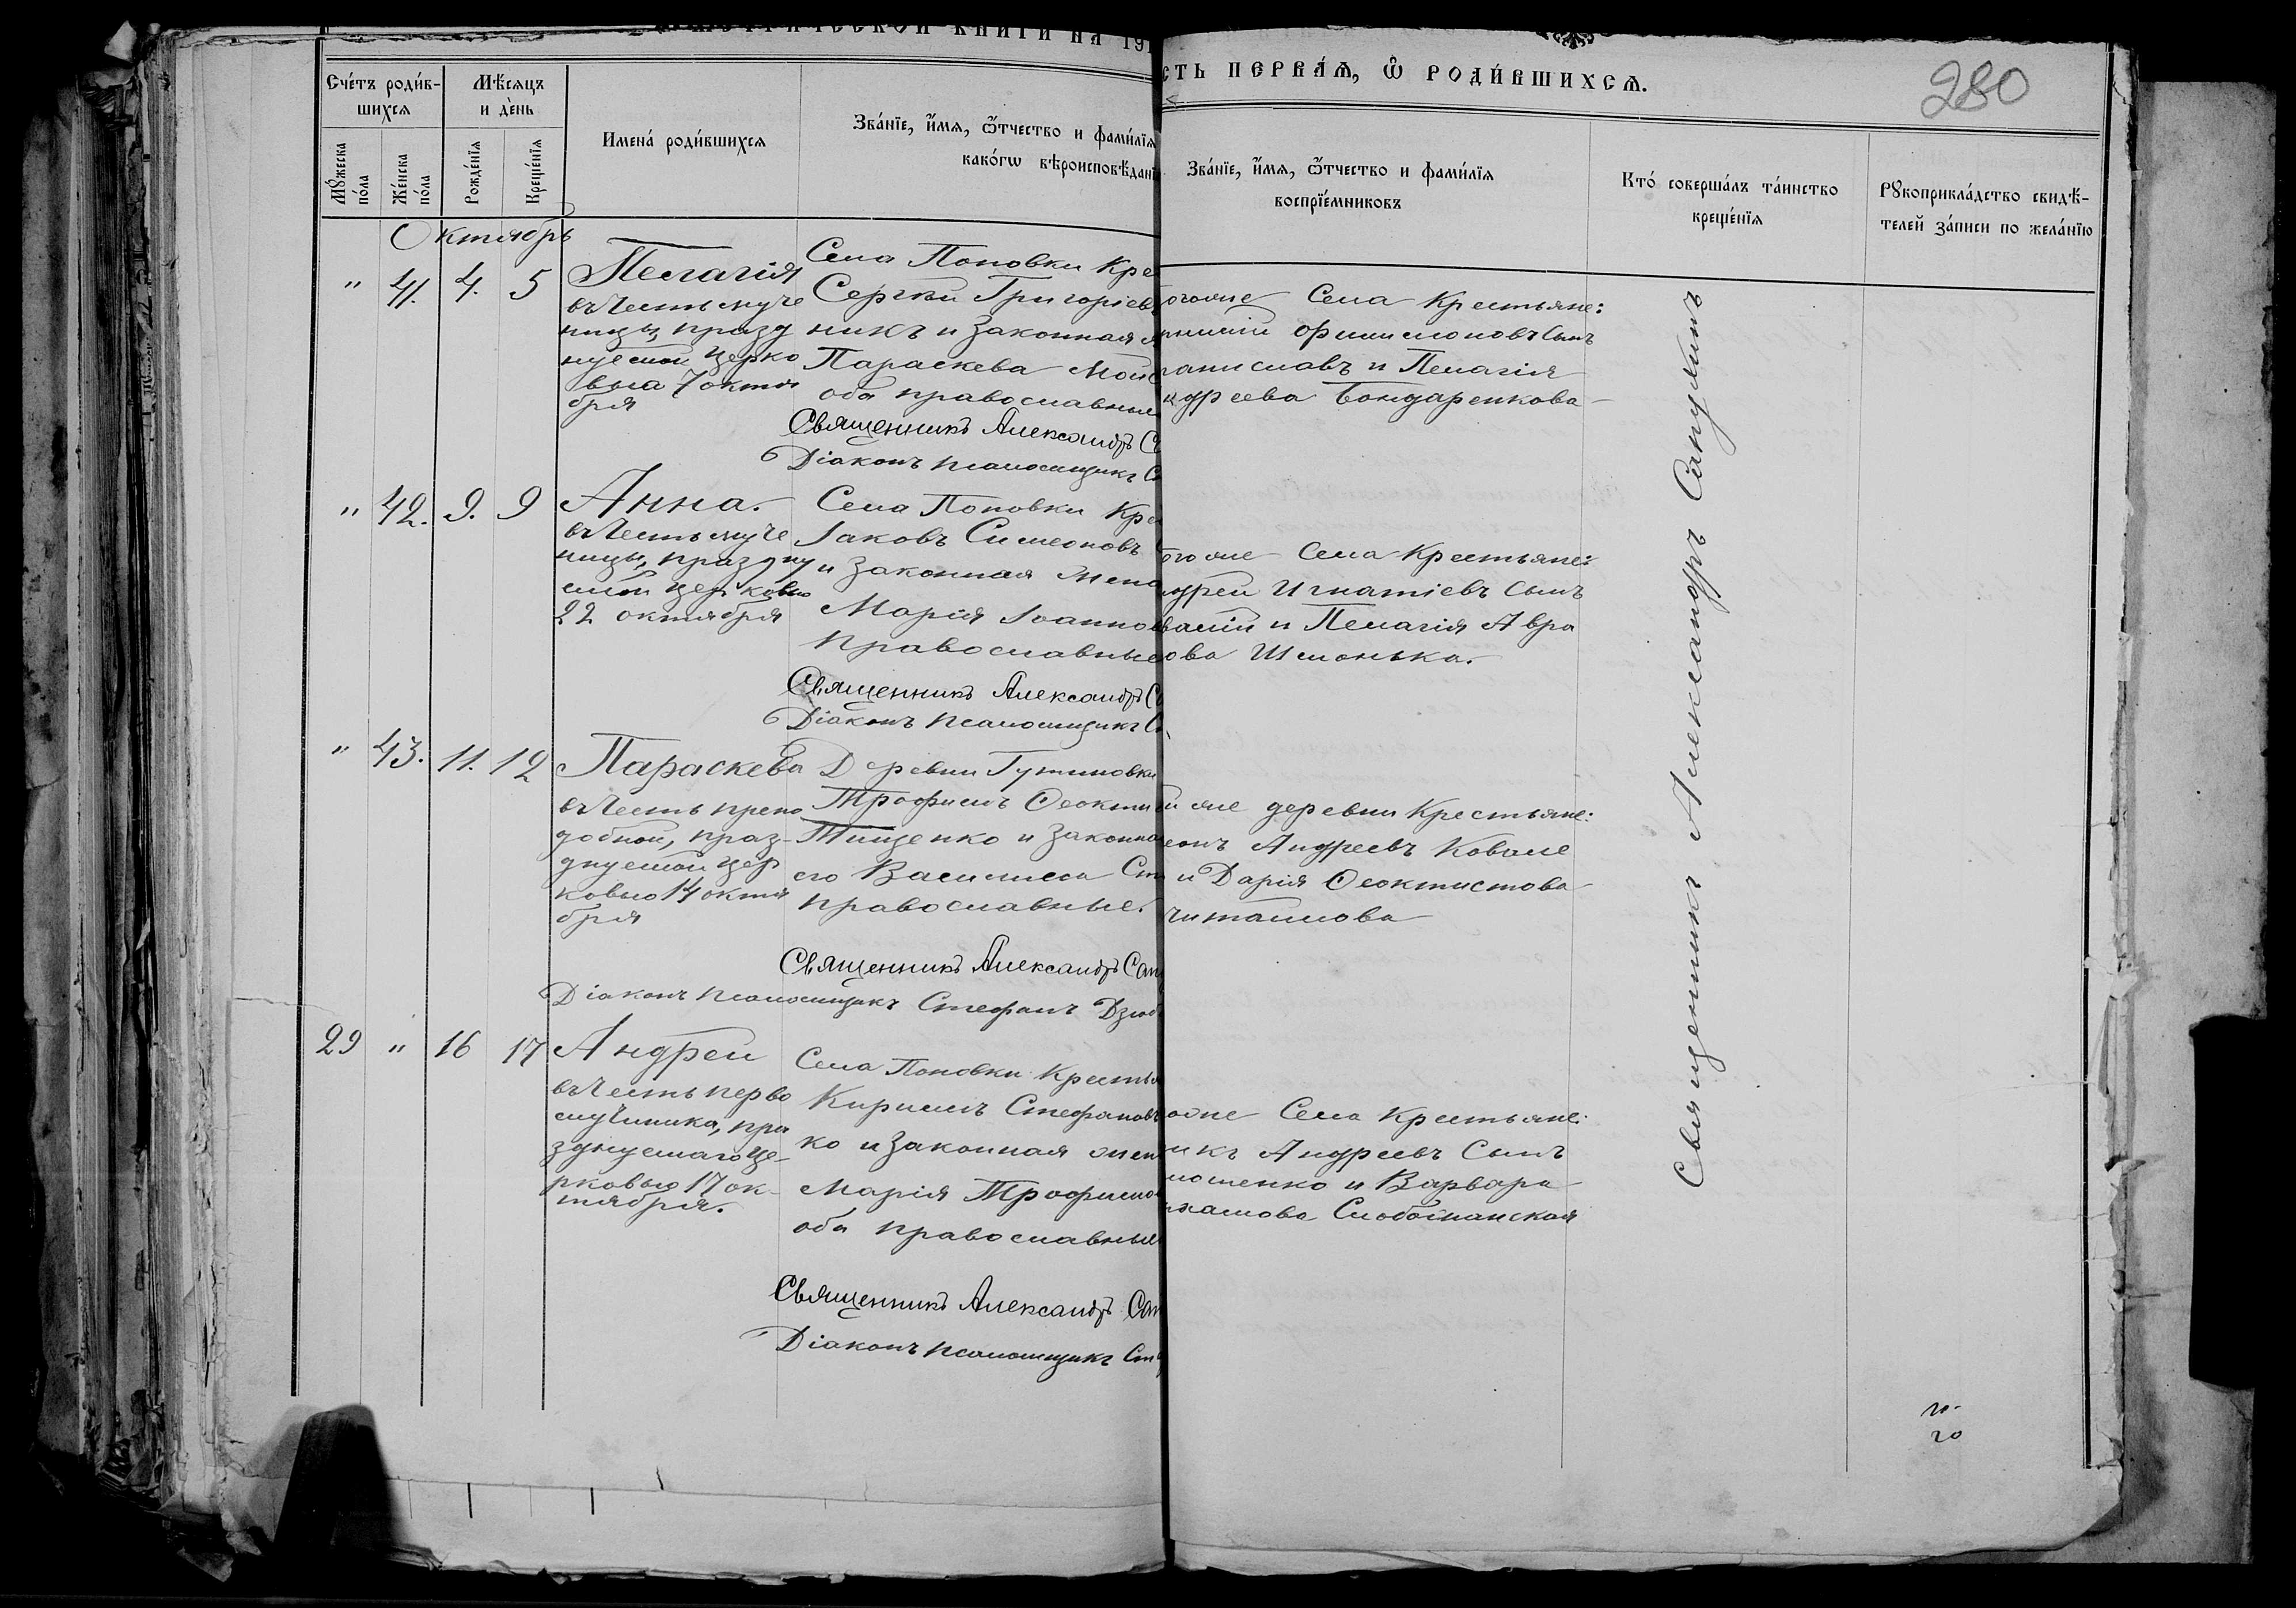 МЕТРИЧЕСКОЙ КНИГИ НА 191
СТЬ ПЕРВАЯ, Ѡ РОДИВШИХСЯ.
280
Счетъ родив-
шихся
Мѣсяцъ
и день
Мужеска
пола
Женска
пола
Рожденїя
Крещенїя
Имена родившихся
Званїе, имя, ѿтчество и фамилїя
какогѡ вѣроисповѣданї
Званїе, имя, ѿтчество и фамилїя
воспрїемниковъ
Кто совершалъ таинство
крещенїя
Рукоприкладство свидѣ-
телей записи по желанїю
Октябрь
" 41. 4. 5
Пелагія
въ честь муче
ницы, празд
нуемой церко
вью 7 октя
бря
Села Поповки Кре
Сергѣй Григоріев
никъ и законная
Параскева Мои
оба православные
Священникъ Александръ С
Діаконъ псаломщикъ С
огоже Села Крестьяне:
Филимоновъ сынъ
аниславъ и Пелагія
ндреева Бондаренкова
" 42. 9. 9
Анна.
въ честь муче
ницы, праздну
емой церковью
22 октября
Села Поповки Кре
Іаковъ Симеоновъ
и законная жена
Марія Іоаннов
Православные
Священникъ Александръ С
Діаконъ псаломщикъ С
огоже Села Крестьяне:
ндрей Игнатіевъ сынъ
и Пелагія Авра
ова Шмонька.
" 43. 11. 12
Параскева
въ честь препо
добной, праз-
днуемой цер
ковью 14 октя
бря
Деревни Гутиновки
Трофимъ Ѳеокти
Тищенко и законна
его Василисса Ст
православные.
Священникъ Александръ Сап
Діаконъ псаломщикъ Стефанъ Дзюб
й же деревни Крестьяне:
еонъ Андреевъ Ковале
и Дарія Ѳеоктистова
29 " 16 17
Андрей
въ честь перво
мученика, пра
зднуемаго це-
рковью 17 ок-
тября.
Села Поповки Крестья
Кириллъ Стефановъ
ко и законная жен
Марія Трофимо
оба православные
Священникъ Александръ Сап
Діаконъ псаломщикъ Сте
огоже Села Крестьяне:
икъ Андреевъ Сынъ
мошенко и Варвара
Слобожанская
Священникъ Александръ Сапухинъ